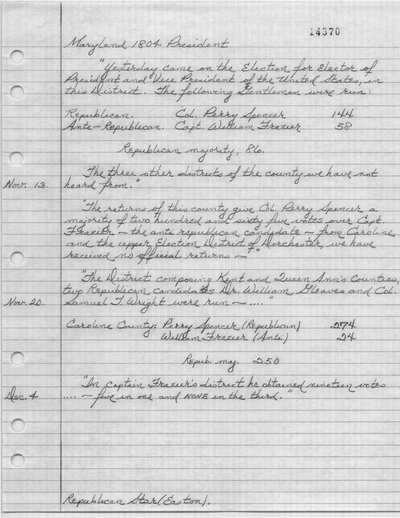 14370
Maryland 1804 President
"Yesterday came on the Election for Elector of
President and Vice President of the United States, in
this District. The following Gentlemen were run:
Republican. Col. Perry Spencer 144
Ante-Republican. Capt. William Frazier 58
Republican majority, 86.
"The three other districts of the county we have not
Nov. 13. heard from."
"The returns of this county give Col. Perry Spencer a
majority of two hundred and sixty five votes over Capt.
Frazier - the ante republican candidate - from Caroline
and the upper Election District of Dorchester, we have
received no official returns -"
"The District composing Kent and Queen Ann's Counties,
two Republican candidates Dr. William Gleaves and Col.
Nov. 20. Samuel T. Wright were run - ...."
Caroline County: Perry Spencer (Republican) 274
William Frazier (Ante) 24
Repub. maj. 250
"In Captain Frazier's district he obtained nineteen votes
Dec. 4 .... - five in one and NONE in the third."
Republican Star (Easton).